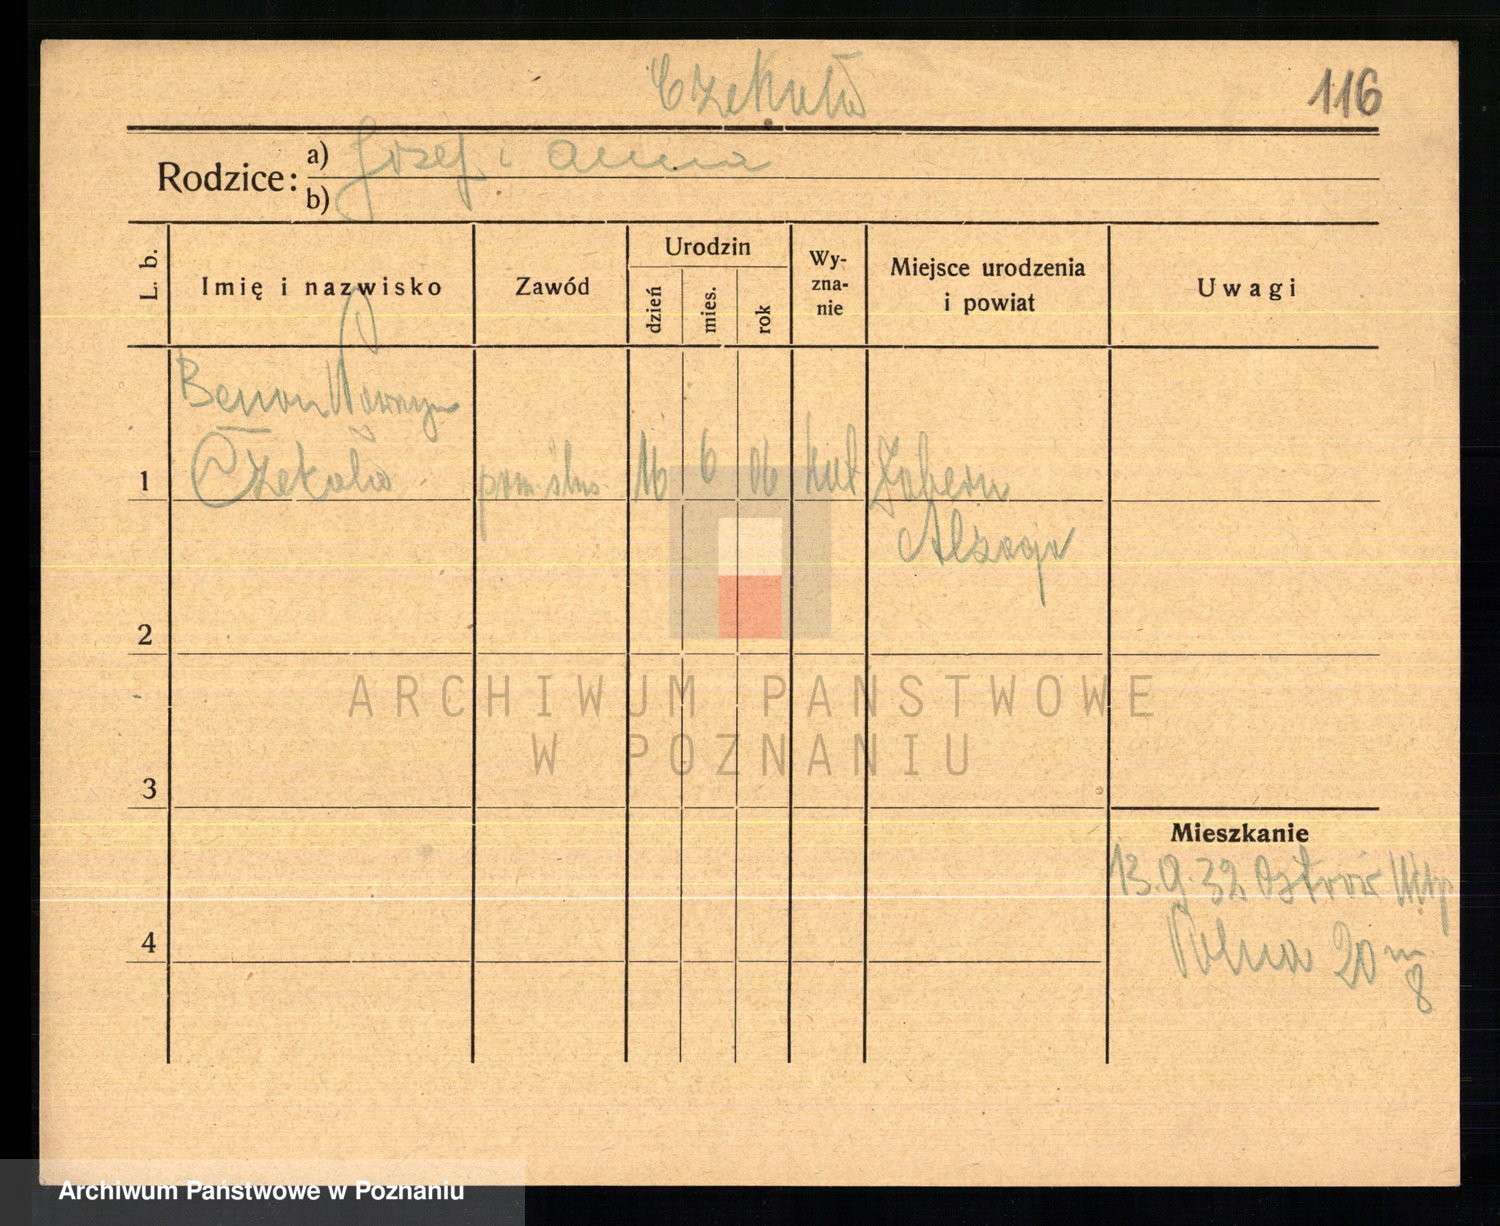 Czekała
116
Rodzice: a) Józef i Anna
b)
L. b.
Imię i nazwisko
Zawód
Urodzin
dzień
mies.
rok
Wy-
zna-
nie
Miejsce urodzenia
i powiat
Uwagi
Benon
1 Czekała pom. 16 6 06 kat Zabern
Alzacja
2
ARCHIWUM PAŃSTWOWE
W POZNANIU
3
Mieszkanie
13.9.32 Ostrów Wlkp
4
Polna 20 m
8
Archiwum Państwowe w Poznaniu